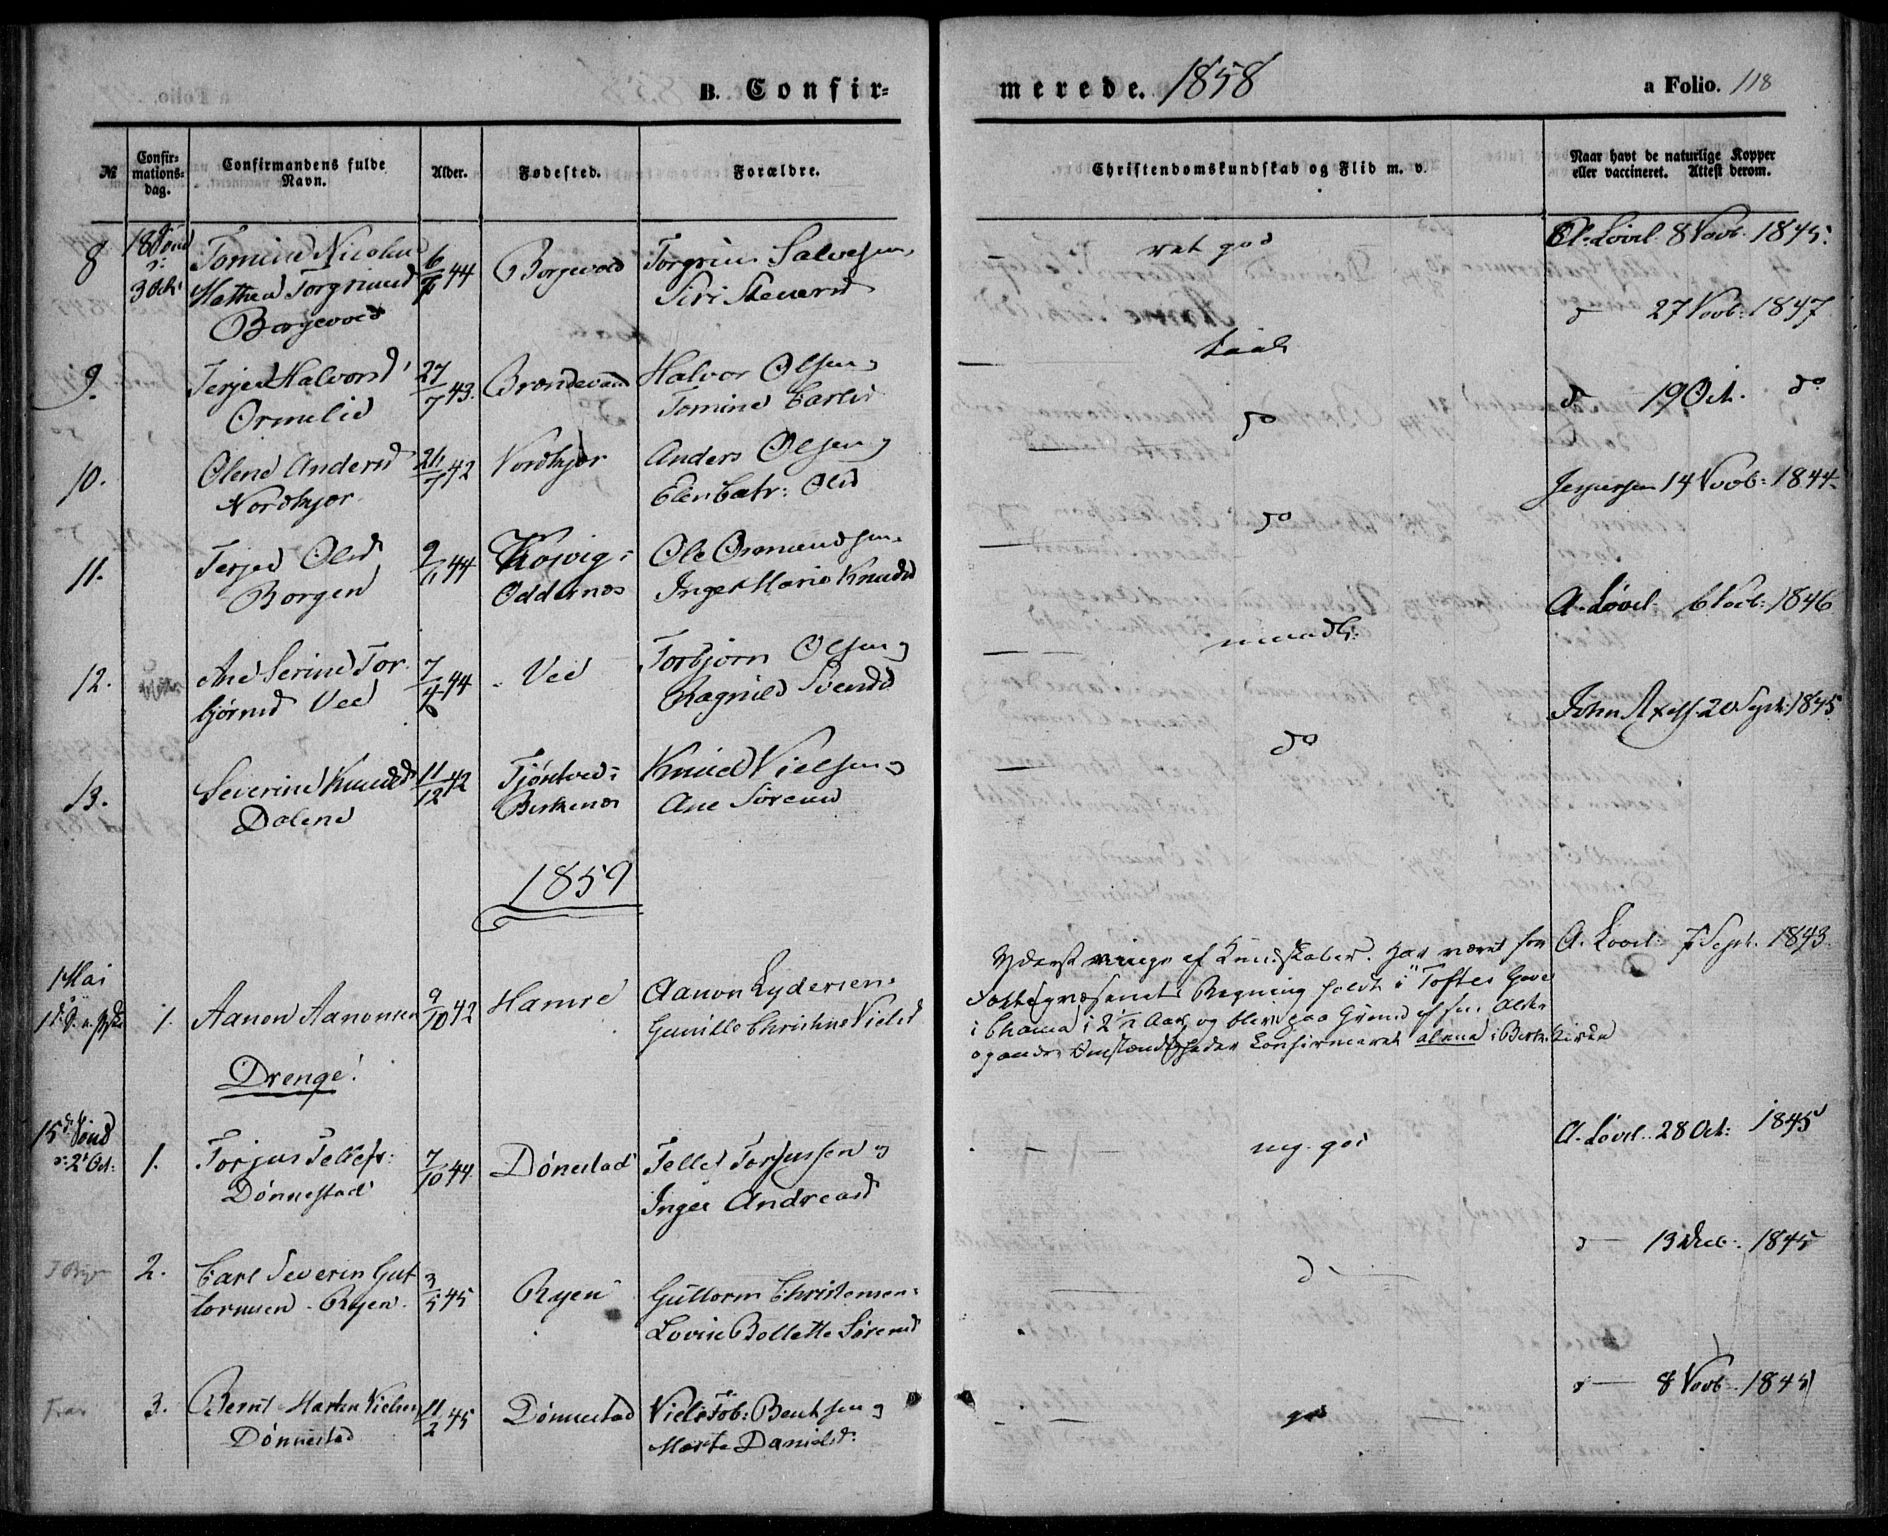 B. Confir-
merede. 1858
a Folio. 118
№
Confir-
mations-
dag.
Confirmandens fulde
Navn.
Alder.
Fødested.
Forældre.
Christendomskundskab og Flid m. v.
Naar havt de naturlige Kopper
eller vaccineret. Attest derom.
8
18 Sønd
3 Oct:
Tomine Nicoline
Mathea Torgrimsd
Borgevold
6/ 44
Borgevold
Torgrim Salvesen
Siri Steners
ret god
A. Løvel. 8 Novb. 1845.
9.
Terjer Halvorsd
Ormelid
27/7 43.
Brændevand
Halvor Olsen
Tomine Carls
taal
d 27 Novb: 1847
10.
Olene Andersd
Nordhjor
26/7 42
Nordhjor
Anders Olsen
Elen Catr: Olsd
do
d 19 Oct. do
11.
Terjer Olsd
Borgen
9/11 44
Kosvig
Oddernes
Ole Osmundsen
Inger Marie Knudsd
do
Jespersen 14 Novb: 1844.
12.
Ane Serine Tor
bjørnsd Vee
7/4 44
Vee
Torbjørn Olsen
Ragnild Svends
maadl:
A. Løvel. 6 Novb: 1846
13.
Severine Knudsd
Dalene
11/12 42
Tjøntved
Birkenes
Knud Nielsen
Ane Sørensd
do
John Axels. 20 Sept. 1845
1859
1 Mai
1.
Aanon Aanonsen
9/10 42
Hamre
Aanon Lydersen
Gunille Christine Nielsd
Yderst ringe af Kundskaber. Har været for
Fattigvæsenets Regning holdt i "Toftes Gave
i Chania i 2½ Aar, og blev paa Grund af sin Alder
og andre Omstændigheder Confirmeret alene i Birk: kirke
A. Løvel. 7 Sept. 1843.
Drenge.
15de Sønd
2 Oct:
1.
Torjus Tellefs:
Dønnestad
7/10 44
Dønestad
Tellef Torjussen
Inger Andreasd
mg. god
A. Løvel. 28 Oct: 1845
2.
Carl Severin Gut
tormsen Ryen
3/5 45
Ryen
Guttorm Christensen
Lovise Bollette Sørensd
d
d 13 Deb: 1845
3.
Bernt Martin Nielsen
Dønnestad
11/2 45
Dønnestad
Niels Tob: Bentsen
Marte Danielsd:
god
d 8 Novb 1845